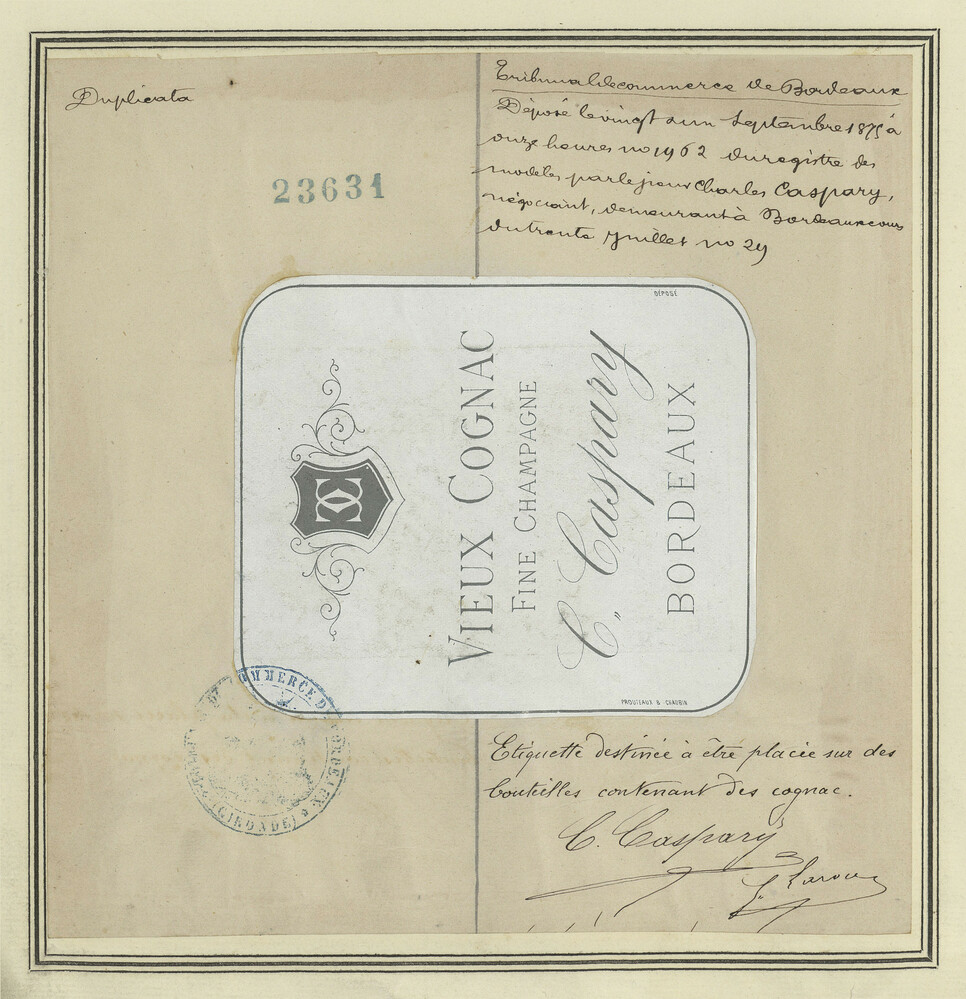 Duplicata
23631
Tribunal de commerce de Bordeaux
Déposé le vingt a un Septembre 1875 à
onze heures no 1962 du registre des
modèles par le sieur Charles Caspary,
négociant, demeurant à Bordeaux cours
du trente Juillet no 29
DÉPOSÉ
VIEUX COGNAC
FINE CHAMPAGNE
C. Caspary
BORDEAUX
PROUTEAUX & CHAUBIN
COMMERCE DE BORDEAUX
(GIRONDE)
Etiquette destinée à être placée sur des
bouteilles contenant des cognac.
C. Caspary